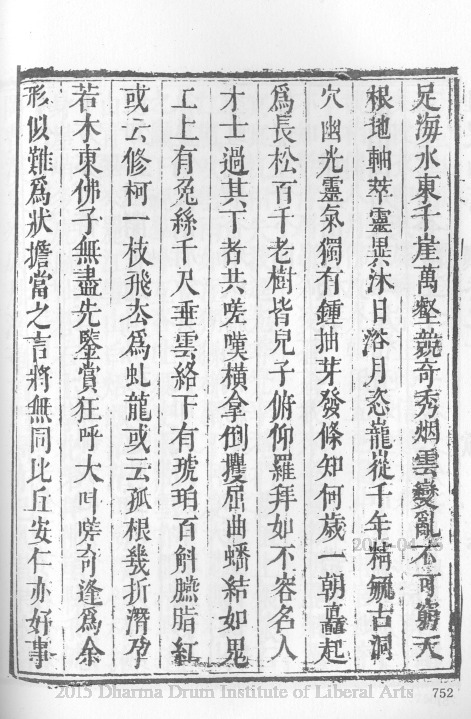 足海水東千崖萬壑競奇秀烟雲變亂不可窮天
根地軸萃靈異沐日浴月恣龍嵸千年精毓古洞
穴幽光靈氣獨有鍾抽芽發條知何歲一朝矗起
爲長松百千老樹皆兒子俯仰羅拜如不容名人
才士過其下者共嗟嘆橫拿倒攫屈曲蟠結如鬼
工上有兔絲千尺垂雲絡下有琥珀百斛臙脂紅
或云修柯一枝飛去爲虬龍或云孤根幾折潛孕
若木東佛子無盡先鑒賞狂呼大叫嗟奇逢爲余
形似難爲狀擔當之言將無同比丘安仁亦好事
752
2015 Dharma Drum Institute of Liberal Arts